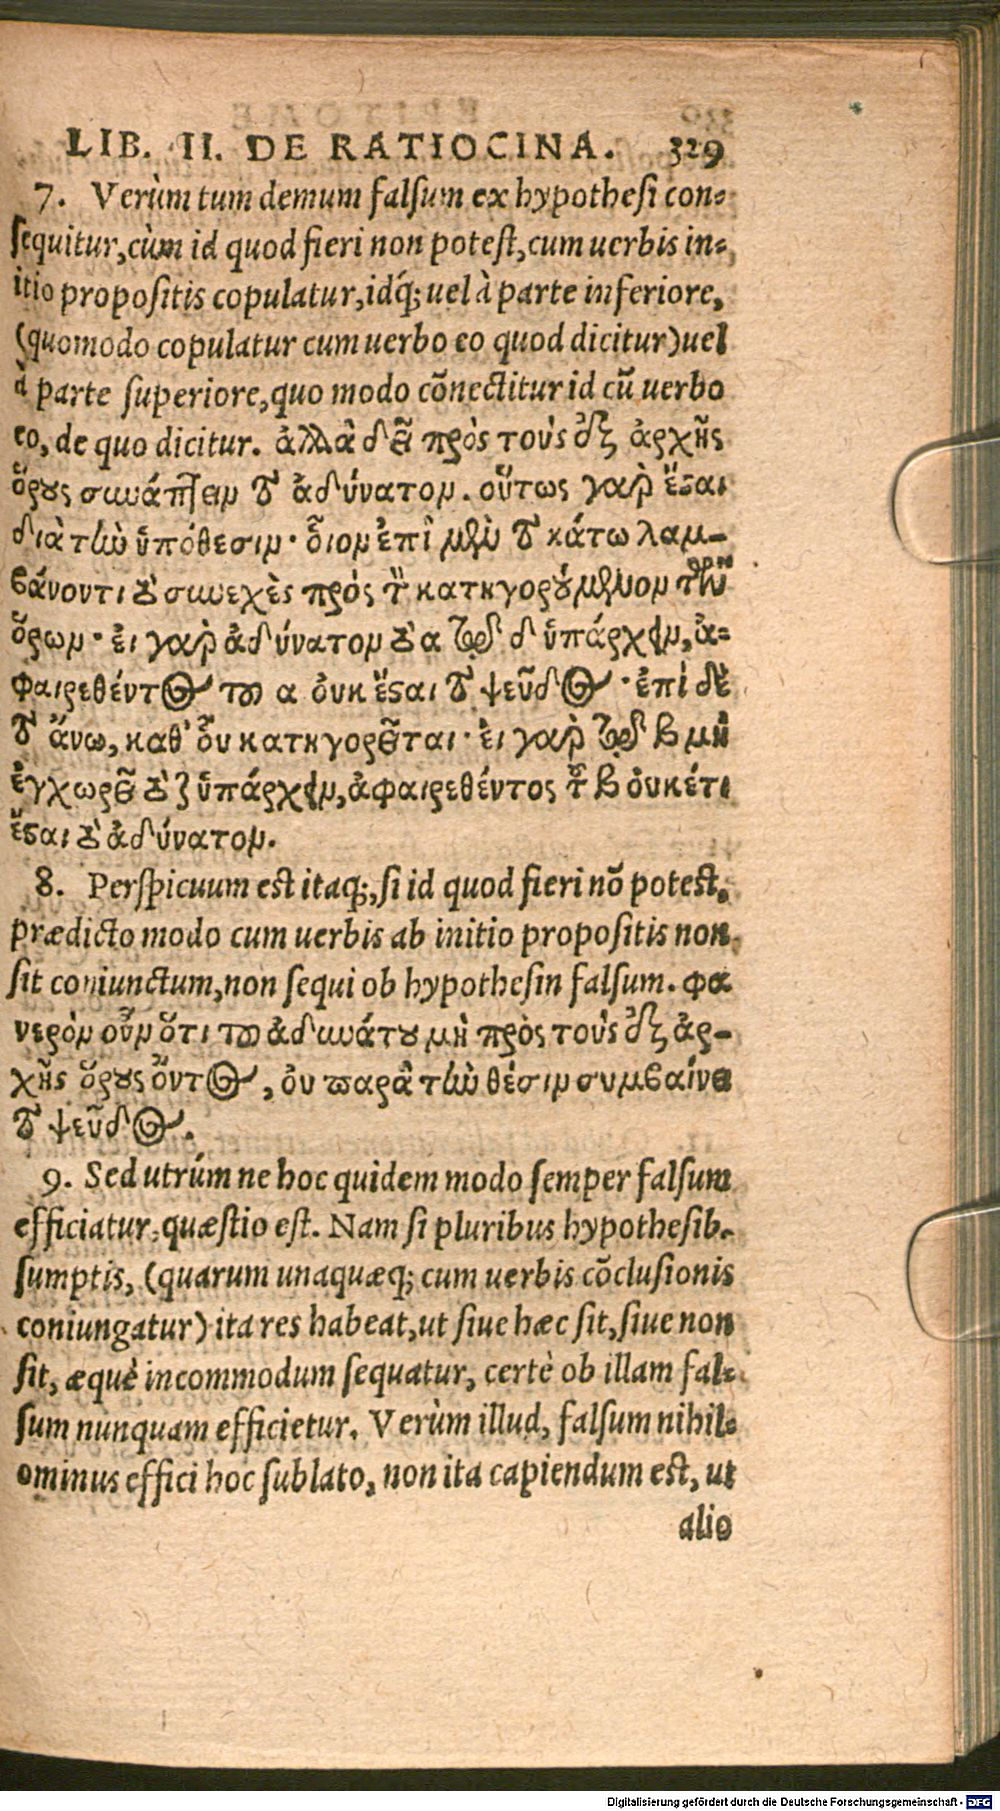 LIB. II. DE RATIOCINA. 329
7. Verùm tum demum falsum ex hypothesi con-
sequitur, cùm id quod fieri non potest, cum uerbis in-
itio propositis copulatur, idq́; uel à parte inferiore,
(quomodo copulatur cum uerbo eo quod dicitur) uel
à parte superiore, quo modo cōnectitur id cū uerbo
eo, de quo dicitur. ἀλλὰ δεῖ πρὸς τοὺς ἐξ ἀρχῆς
ὅρους συνάπτειν τὸ ἀδύνατον. οὕτως γὰρ ἔσαι
διὰ τὴν ὑπόθεσιν· οἷον ἐπὶ μὲν τὸ κάτω λαμ-
βάνοντι τὸ συνεχὲς πρὸς τὸ κατηγορούμενον τῶν
ὅρων· εἰ γὰρ ἀδύνατον τὸ α τῷ δ ὑπάρχειν, ἀ-
φαιρεθέντος τοῦ α οὐκ ἔσαι τὸ ψεῦδος· ἐπὶ δὲ
τὸ ἄνω, καθ' οὗ κατηγορεῖται· εἰ γὰρ τῷ β μὴ
ἐγχωρεῖ τὸ ζ ὑπάρχειν, ἀφαιρεθέντος τοῦ β οὐκέτι
ἔσαι τὸ ἀδύνατον.
8. Perspicuum est itaq;, si id quod fieri nō potest,
prædicto modo cum uerbis ab initio propositis non
sit coniunctum, non sequi ob hypothesin falsum. φα
νερὸν οὖν ὅτι τοῦ ἀδυνάτου μὴ πρὸς τοὺς ἐξ ἀρ-
χῆς ὅρους ὄντος, οὐ παρὰ τὴν θέσιν συμβαίνει
τὸ ψεῦδος.
9. Sed utrúm ne hoc quidem modo semper falsum
efficiatur, quæstio est. Nam si pluribus hypothesib.
sumptis, (quarum unaquæq; cum uerbis cōclusionis
coniungatur) ita res habeat, ut siue hæc sit, siue non
sit, æquè incommodum sequatur, certè ob illam fal-
sum nunquam efficietur. Verùm illud, falsum nihil-
ominus effici hoc sublato, non ita capiendum est, ut
alio
Digitalisierung gefördert durch die Deutsche Forschungsgemeinschaft - DFG